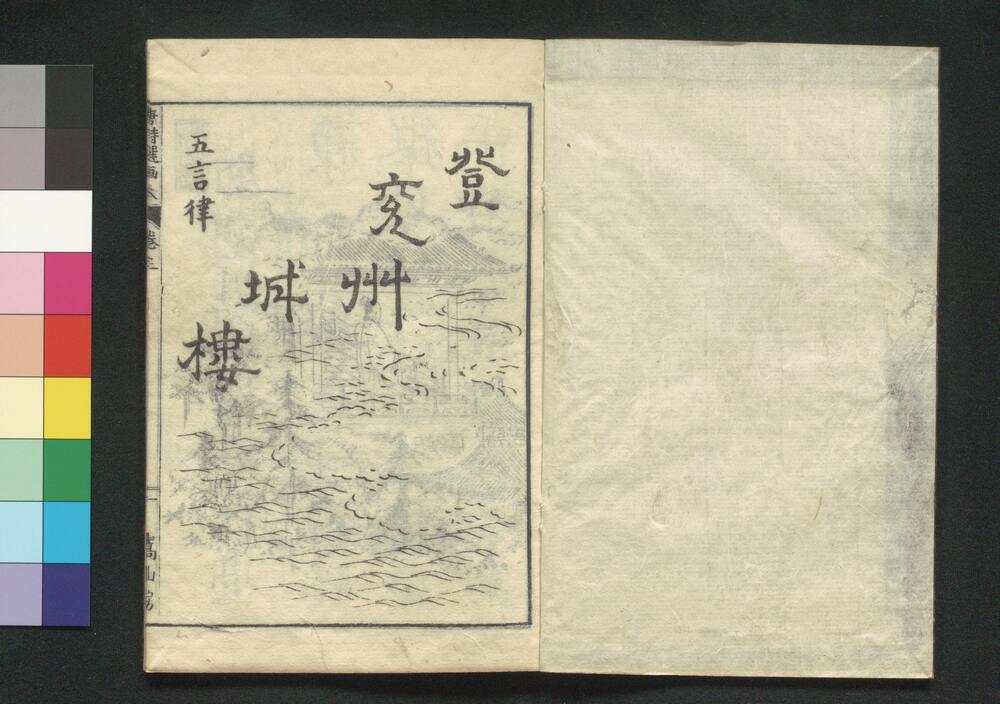 登兗州城樓
五言律
唐詩選画本
卷三
一
嵩山房